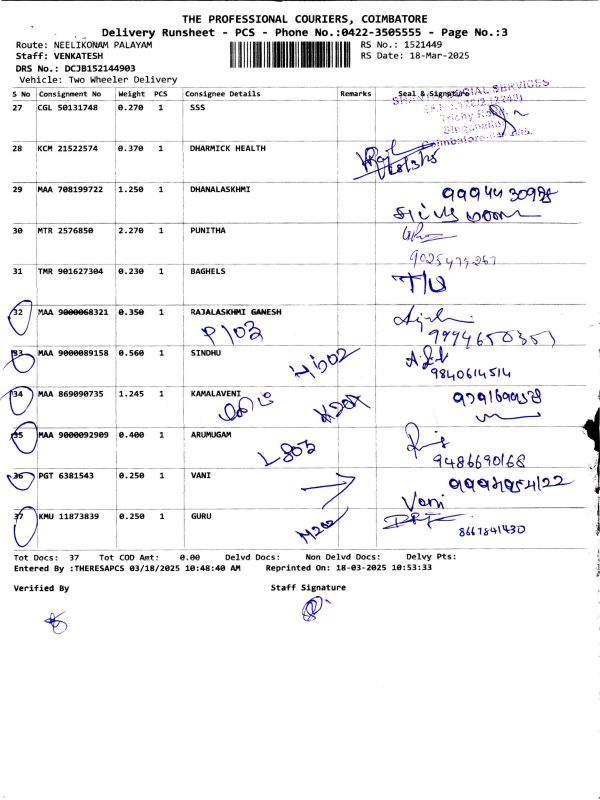 THE PROFESSIONAL COURIERS, COIMBATORE
Delivery Runsheet - PCS - Phone No.:0422-3505555 - Page No.:3
Route: NEELIKONAM PALAYAM
RS No.: 1521449
Staff: VENKATESH
RS Date: 18-Mar-2025
DRS No.: DCJB152144903
Vehicle: Two Wheeler Delivery
S No Consignment No Weight PCS Consignee Details Remarks Seal & Signature
27 CGL 50131748 0.270 1 SSS
Trichy Road
28 KCM 21522574 0.370 1 DHARMICK HEALTH
29 MAA 708199722 1.250 1 DHANALASKHMI
30 MTR 2576850 2.270 1 PUNITHA
9025479267
31 TMR 901627304 0.230 1 BAGHELS
32 MAA 9000068321 0.350 1 RAJALASKHMI GANESH
P103
33 MAA 9000089158 0.560 1 SINDHU
H602
9840614514
34 MAA 869090735 1.245 1 KAMALAVENI
35 MAA 9000092909 0.400 1 ARUMUGAM
L803
9486690168
36 PGT 6381543 0.250 1 VANI
Vani
37 KMU 11873839 0.250 1 GURU
M202
8667841430
Tot Docs: 37 Tot COD Amt: 0.00 Delvd Docs: Non Delvd Docs: Delvy Pts:
Entered By :THERESAPCS 03/18/2025 10:48:40 AM Reprinted On: 18-03-2025 10:53:33
Verified By Staff Signature